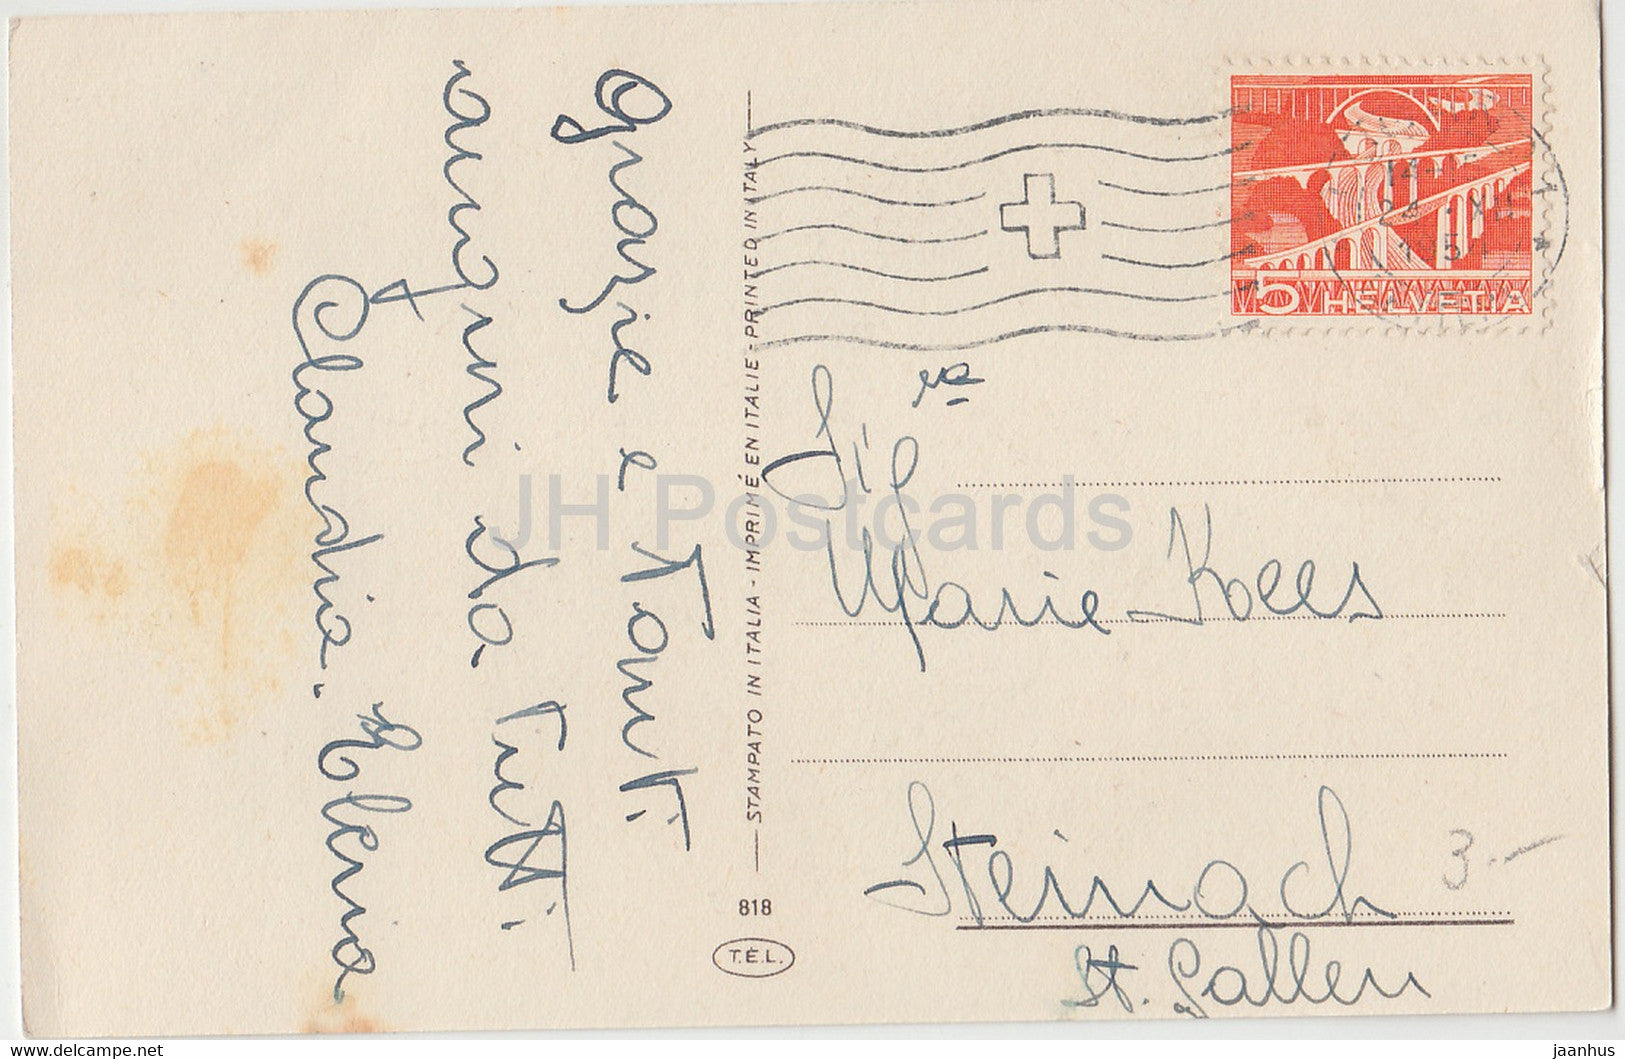 Grazie e Tanti
auguri da Tutti
Claudia. Elena
STAMPATO IN ITALIA - IMPRIMÉ EN ITALIE - PRINTED IN ITALY
818
T.E.L.
24. XII
195
5 HELVETIA
Sig.ra
Marie Kees
Steinach
St. Gallen
3.-
JH Postcards
akpool-delcampe.net/store/jaanhus